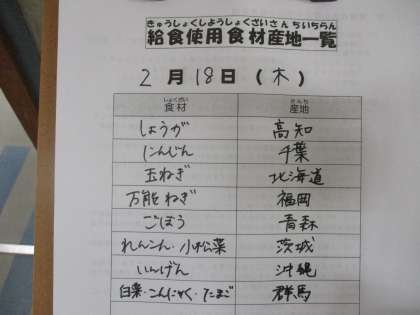 きゅうしょくしようしょくざいさんちいちらん
給食使用食材産地一覧
2月18日(木)
しょくざい さんち
食材 産地
しょうが 高知
にんじん 千葉
玉ねぎ 北海道
万能ねぎ 福岡
ごぼう 青森
れんこん・小松菜 茨城
いんげん 沖縄
白菜・こんにゃく・たまご 群馬